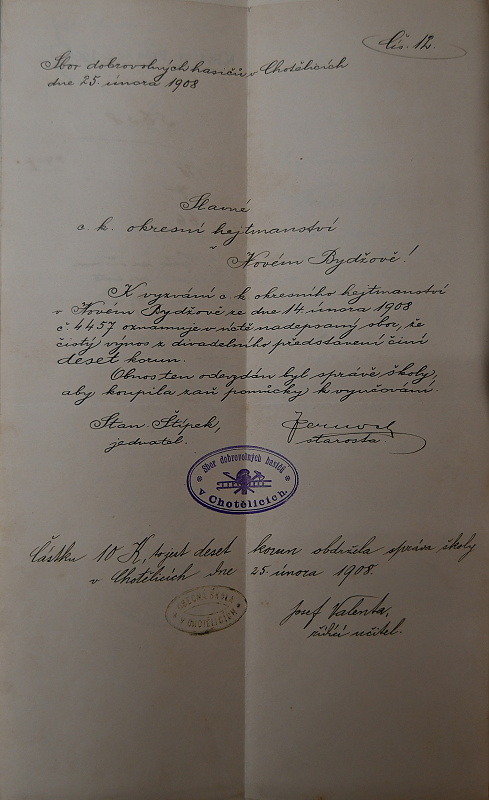 Čís. 12.
Sbor dobrovolných hasičů v Chotělicích
dne 25. února 1908
Slavné
c. k. okresní hejtmanství
v
Novém Bydžově!
K vyzvání c. k. okresního hejtmanství
v Novém Bydžově ze dne 14 února 1908
č 4457 oznamuje v úctě nadepsaný sbor, že
čistý výnos z divadelního představení činí
deset korun.
Obnos ten odevzdán byl správě školy,
aby koupila zaň pomůcky k vyučování.
Stan. Štípek,
jednatel.
starosta.
Sbor dobrovolných hasičů
v Chotělicích.
Částku 10 K, to jest deset korun obdržela správa školy
v Chotělicích dne 25. února 1908.
OBECNÁ ŠKOLA
V CHOTĚLICÍCH
Josef Valenta,
řídící učitel.